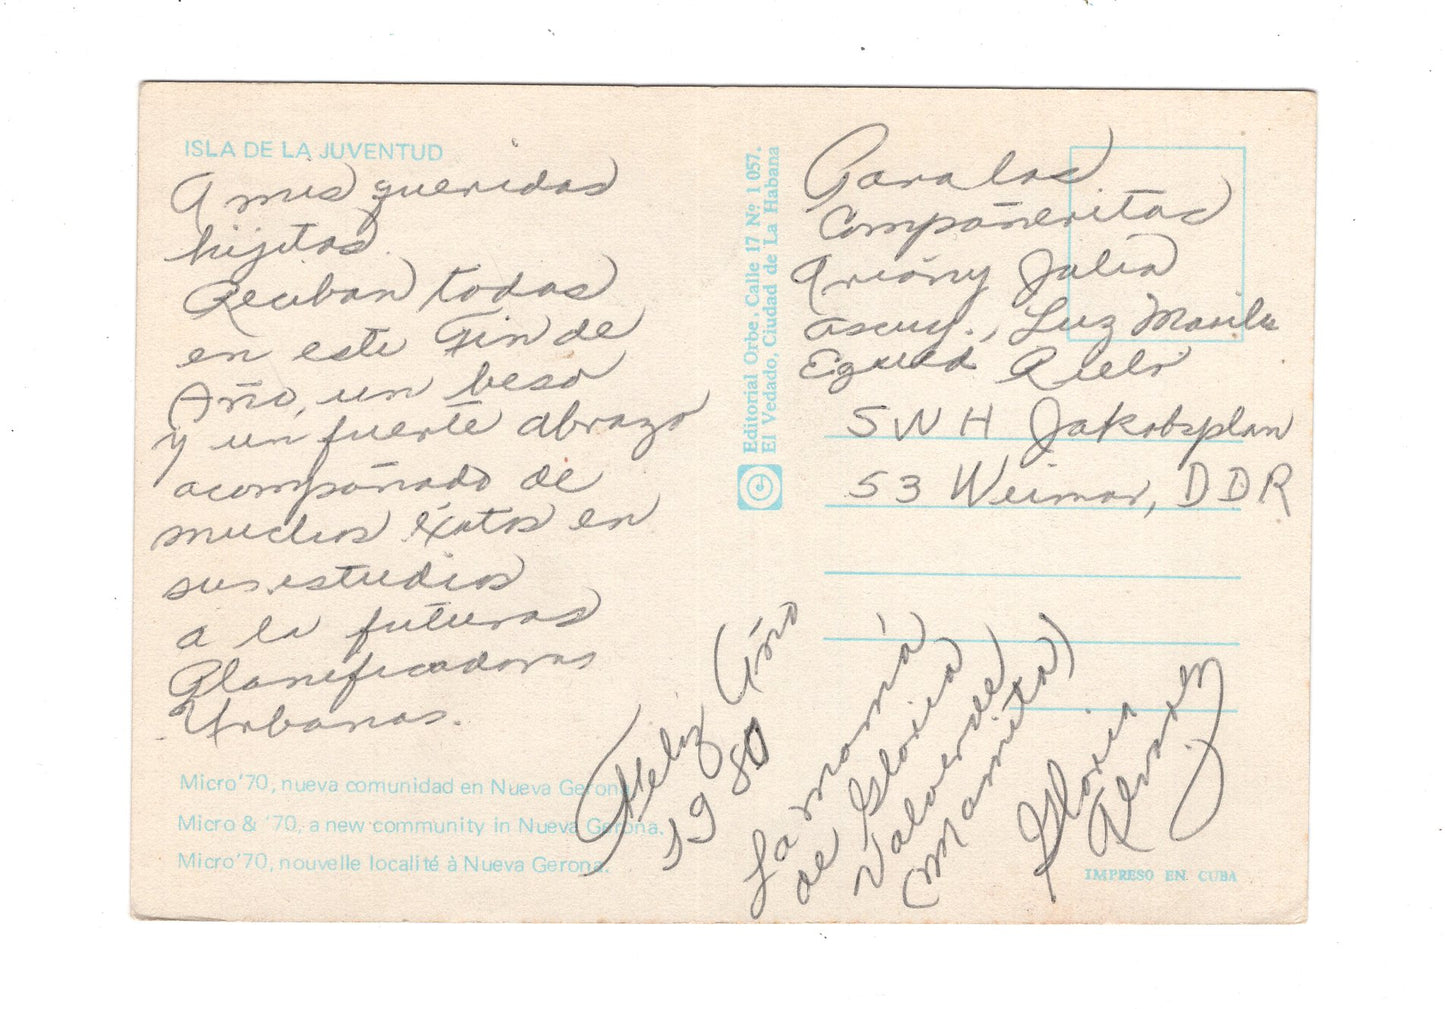 ISLA DE LA JUVENTUD
A mis queridas
hijitas
Reciban todas
en este Fin de
Año, un beso
y un fuerte abrazo
acompañado de
muchos éxitos en
sus estudios
a la futuras
Planificadoras
Urbanas.
Micro '70, nueva comunidad en Nueva Gerona.
Micro & '70, a new community in Nueva Gerona.
Micro '70, nouvelle localité à Nueva Gerona.
Feliz Año
1980
Editorial Orbe, Calle 17 Nº 1 057.
El Vedado, Ciudad de La Habana
Para las
Compañeritas
Julia
Luz
SWH Jakobsplan
53 Weimar, DDR
La mamá
de Gloria
Valverde
(Mamita)
Gloria
Alvarez
IMPRESO EN CUBA